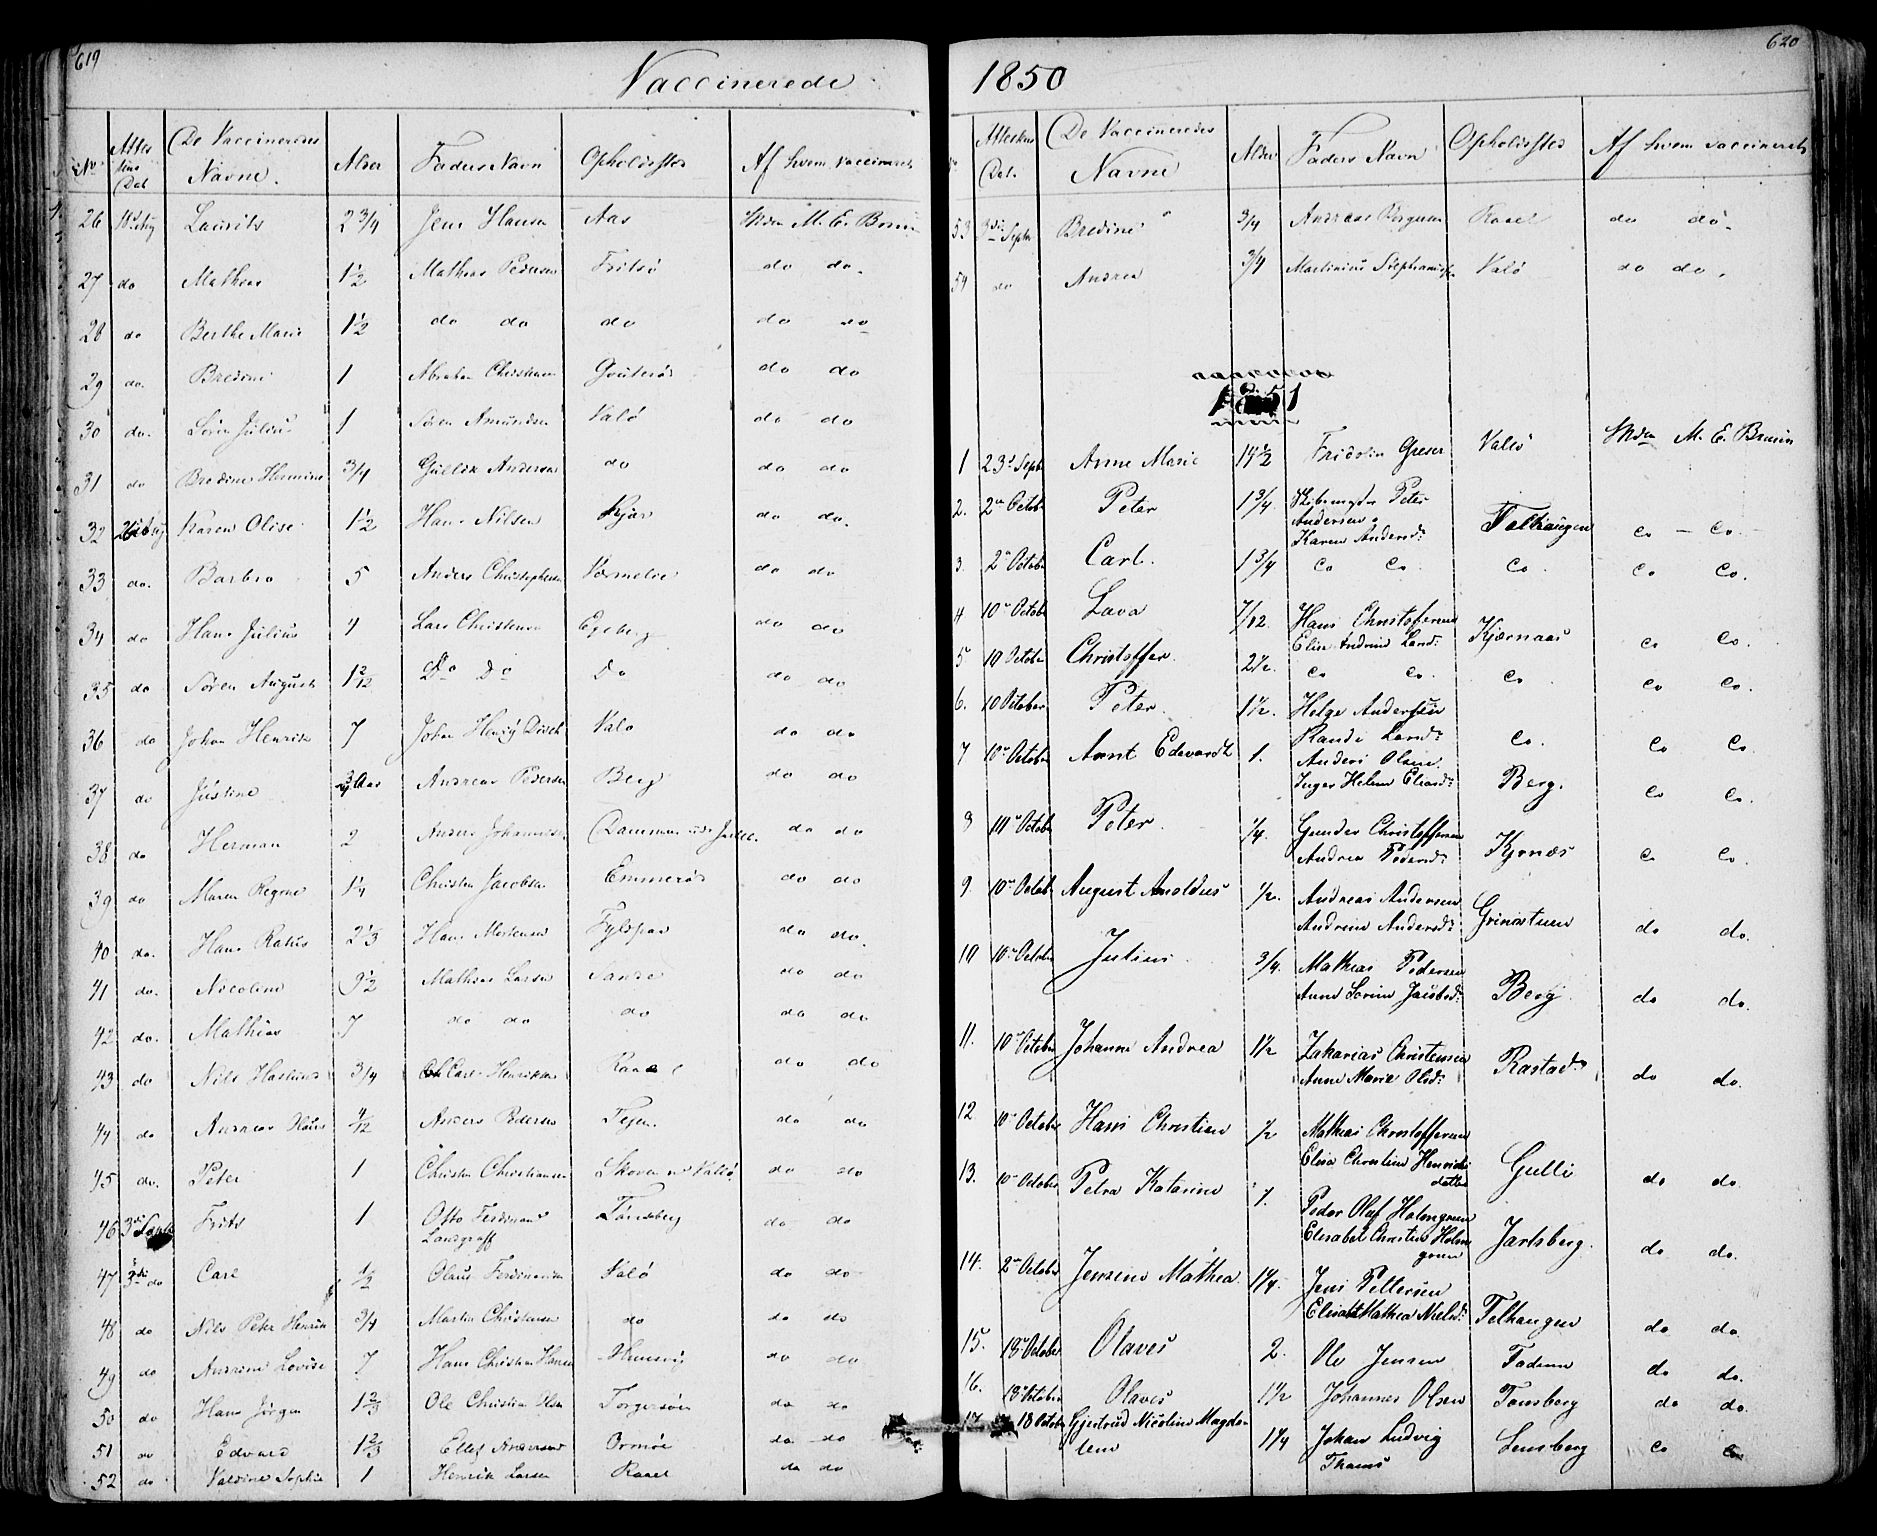 619
Vaccinerede
No Attestens Dat. De Vaccineredes Navne. Alder Faders Navn Opholdssted Af hvem vaccineret
26 Laurits 2 3/4 Jens Hansen Aas M. E. Bruun
27 do Mathias 1 1/2 Mathias Pedersen Fritsö do do.
28 do Berthe Marie 1 1/2 do do do do do
29 do. Bredine 1 Abraham Christensen do do
30 do. Sören Julius 1 Sören Amundsen Valö do do
31 do Bredine Hermine 3/4 Gullik Andersen do do do
32 Karen Olise 1 1/2 Hans Nilsen Kjær do do.
33 do. Barbro 5 Anders Christophersen do do
34 do Hans Julius 4 Lars Christensen Egeberg do do
35 do Sören August 1 2/12 Do Do Do do do
36 do Johan Henrik 7 Johan Valö do do
37 do Justine Andreas Pedersen Berg do do
38 do Herman 2 Anders Johannesen do do
39 do Maren Regine 1 1/4 Christen Jacobsen Emmerös do do
40 do. Hans 2 1/3 Hans Mortensen Fyldpaa do do.
41 do. Nicoline 9 1/2 Mathias Larsen Sande do do
42 do. Mathias 7 do do do do do
43 do Nils 3/4 Carl Henriksen do do
44 do Andreas 4/12 Anders Pedersen Tejen. do do
45 do. Peter 1 Christen Christiansen Skoven Vallö do do
46 3de Septb Frits 1 Otto Ferdinand Landgraff Tönsberg do do
47 3de do Carl 1/2 Olaus Ferdinandsen Valö do do
48 do Nils Peter Henrik 3/4 Martin Christensen do do do
49 do Andrine Lovise 7 Hans Christian Hansen do do
50 do Hans Jörgen 1 2/3 Ole Christian Olsen Torgersöen do do
51 do Edvard 1 2/3 Ellef Andersen Ormöe do do
52 do Valdine Sophie 1 Henrik Larsen Raael do do
620
1850
Attestens Dat. De Vaccineredes Navne Alder Faders Navn Opholdssted Af hvem vaccineret
53 3die Septbr Bredine 3/4 Andreas Raael do do.
54 do Andrea 3/4 Martinius Stephansen Valö do do.
1851
1 23d Septb Anne Marie 14 1/2 Fridolin Greser Vallö M. E. Bruun
2. 2n Octob Peter 1 3/4 Peter
Andersen
Karen Andersd: Telhaugen co - co.
3. 2n October Carl. 1 3/4 co co. co. co co.
4 10n Octobr Lava 7/12. Hans Christoffersen
Elise Andrine Land: Kjærnaas co co.
5 10 October Christoffer. 2 1/2. co co. co co co.
6. 10 October Peter. 1 1/2. Helge Andersen
Rande Land: co. co co.
7 10n October Arnt Edevardt 1. Anders Olsen.
Inger Helene Elvard: Berg. co co.
8 10n Octob Peter. 1/4. Gunder Christoffersen
Andrea Pedersd: Kjønæs co co.
9. 10n Octob August Arnoldus 1/2. Andreas Andersen
Andrine Andersd: Grinistuen do do.
10 10n Octobr Julius. 3/4. Mathias Pedersen
Anne Sorine Jacobsd: Berg. do do.
11. 10n October Johanne Andrea 1 1/2 Zakarias Christensen
Anne Marie Olsd: Rastad do do.
12 10n Octobr Hans Christian 1/2 Mathias Christoffersen
Elisa Christine Henriksdatter Gulli do do.
13. 10n October Petra Katarine 1. Peder Oluf Holmgreen
Elisabet Christine Holmgreen Jarlsberg. do do.
14. 2n October Jensine Mathea. 1 1/4. Jens Pettersen
Elisabet Mathea Nielsd: Telhaugen do do.
15. 18n October Olaves 2. Ole Jensen Fadum do do.
16. 18n October Olaves 1 1/2 Johannes Olsen Tonsberg do do.
17. 18 October Gjertrud Nicoline Magdalene 1 1/4 Johan Ludvig
Thams Tensberg co co